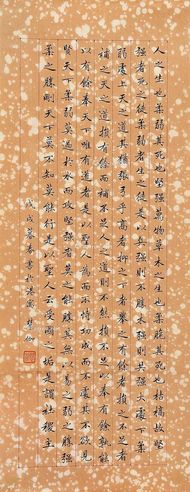 人之生也柔弱其死也堅強萬物草木之生也柔脆其死也枯槁故堅
強者死之徒柔弱者生之徒是以兵強則不勝木強則共強大處下柔
弱處上天之道其猶張弓乎高者抑之下者舉之有餘者損之不足者
補之天之道損有餘而補不足人之道則不然損不足以奉有餘孰能
以有餘奉天下唯有道者是以聖人為而不恃功成而不處其不欲見
賢天下柔弱莫過於水而攻堅強者莫之能勝其無以易之弱之勝強
柔之勝剛天下莫不知莫能行是以聖人云受國之垢是謂社稷主
戊戌暮春書